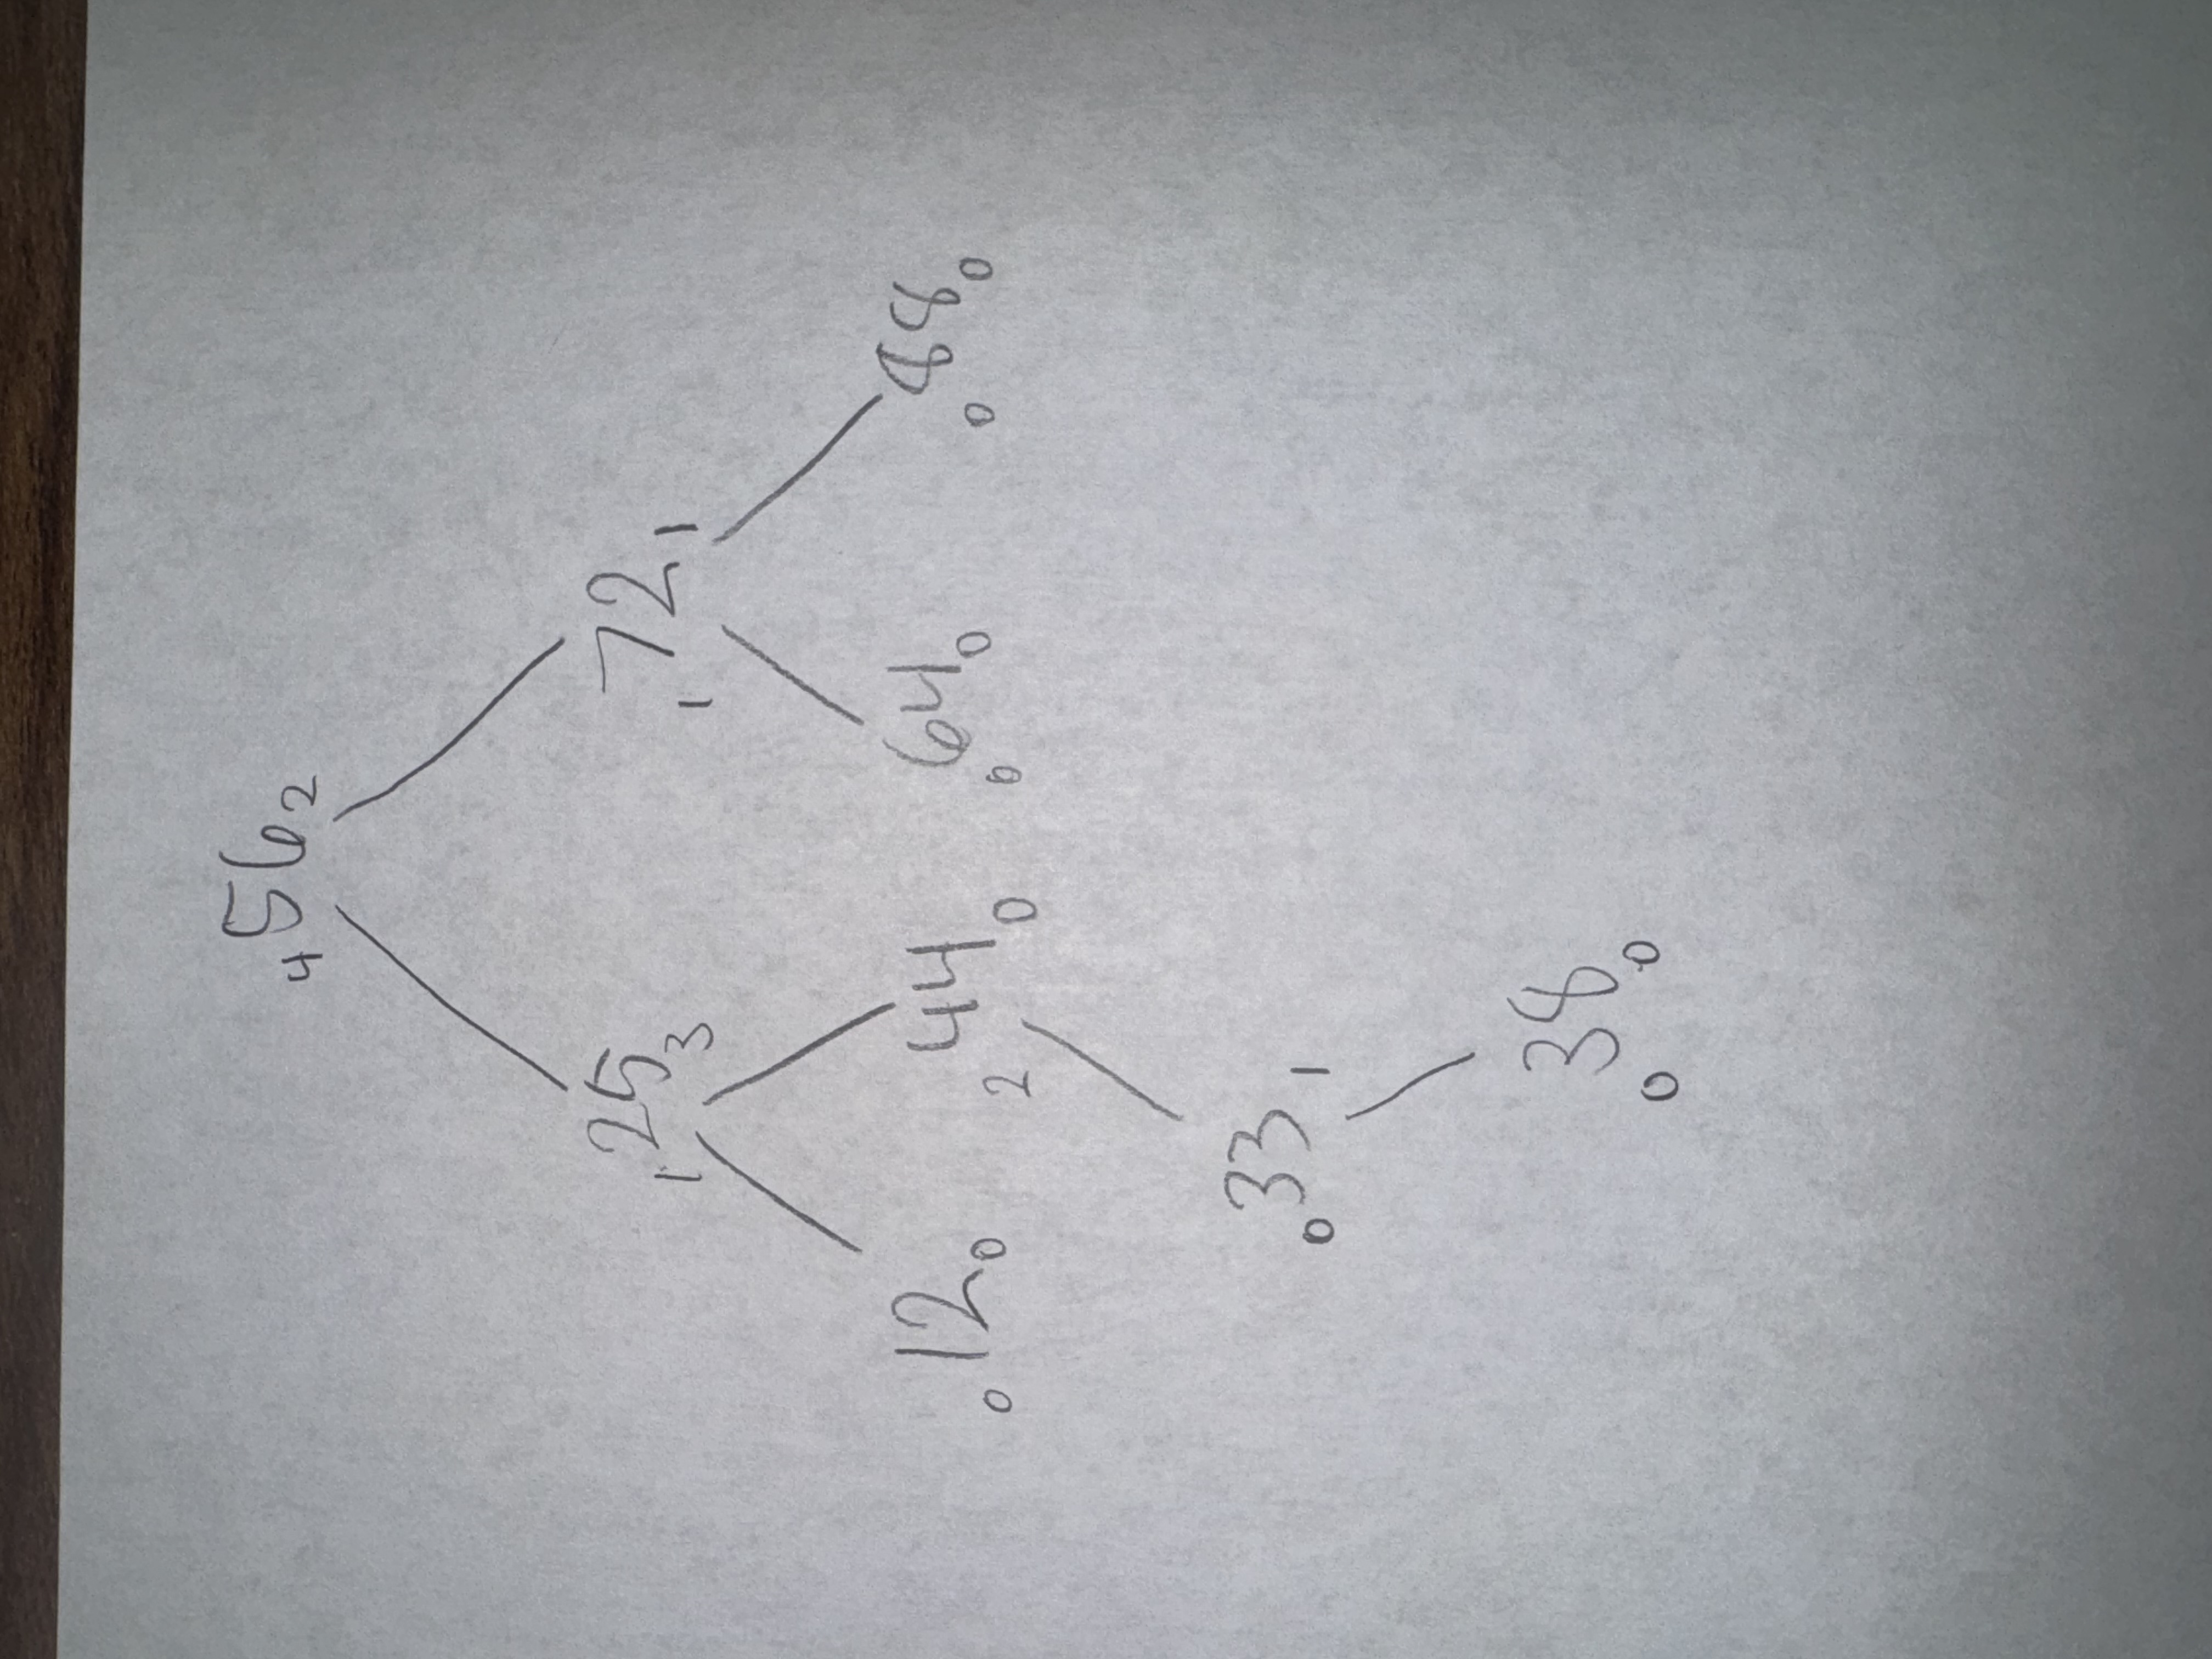 4 56 2
1 25 3 1 72 1
0 12 0 2 44 0 0 64 0 0 88 0
0 33 1
0 38 0